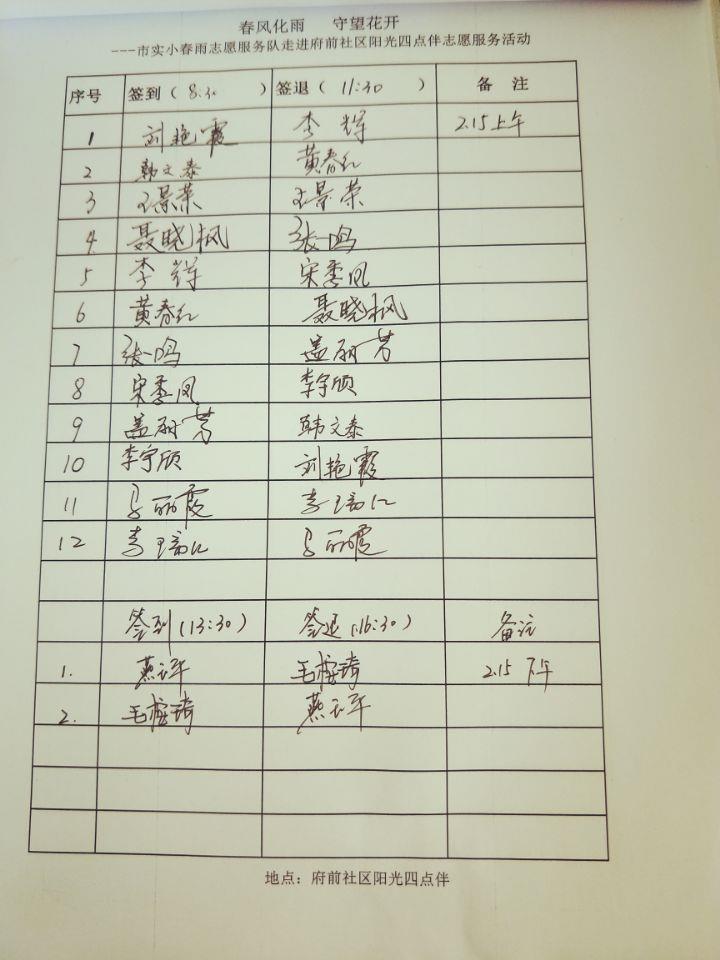 春风化雨 守望花开
---市实小春雨志愿服务队走进府前社区阳光四点伴志愿服务活动
序号 签到（8:30） 签退（11:30） 备 注
1 刘艳霞 李辉 2.15上午
2 韩文泰 黄春红
3 王景荣 王景荣
4 聂晓枫 张鸣
5 李辉 宋季凤
6 黄春红 聂晓枫
7 张鸣 盖丽芳
8 宋季凤 李宇欣
9 盖丽芳 韩文泰
10 李宇欣 刘艳霞
11 马丽霞
12 马丽霞
签到(13:30) 签退(16:30) 备注
1. 2.15 下午
2.
地点：府前社区阳光四点伴